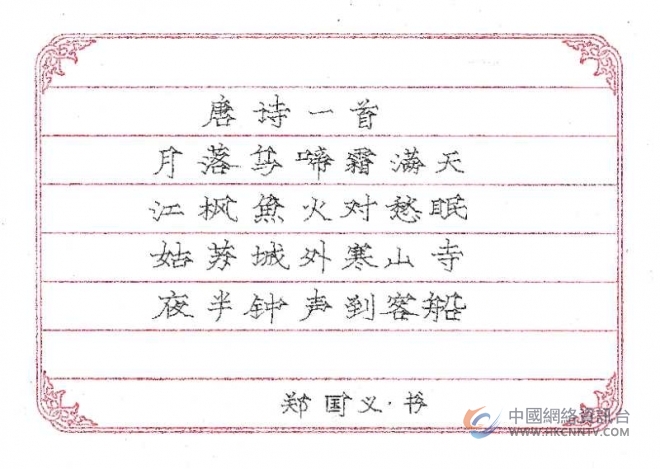 唐诗一首
月落乌啼霜满天
江枫渔火对愁眠
姑苏城外寒山寺
夜半钟声到客船
郑国义·书
中國網絡資訊台
WWW.HKCNNTV.COM